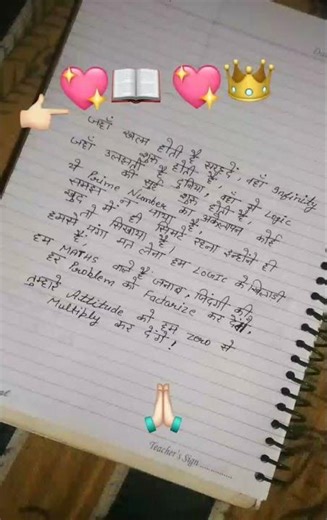 जहाँ खत्म होती है सरहदें, वहाँ Infinity
शुरू होती है,
जहाँ उलझती है दुनिया, वहाँ से Logic
शुरू होती है,
ये Prime Number का अकेलापन कोई
समझ न पाया है,
खुद में ही सिमटे रहना इन्होंने ही
तो सिखाया है,
हमसे पंगा मत लेना हम Logic के खिलाड़ी
हैं,
हम MATHS वाले हैं जनाब, जिंदगी की
हर Problem को Factorize कर देंगे,
तुम्हारे Attitude को हम zero से
Multiply कर देंगे,
Teacher's Sign